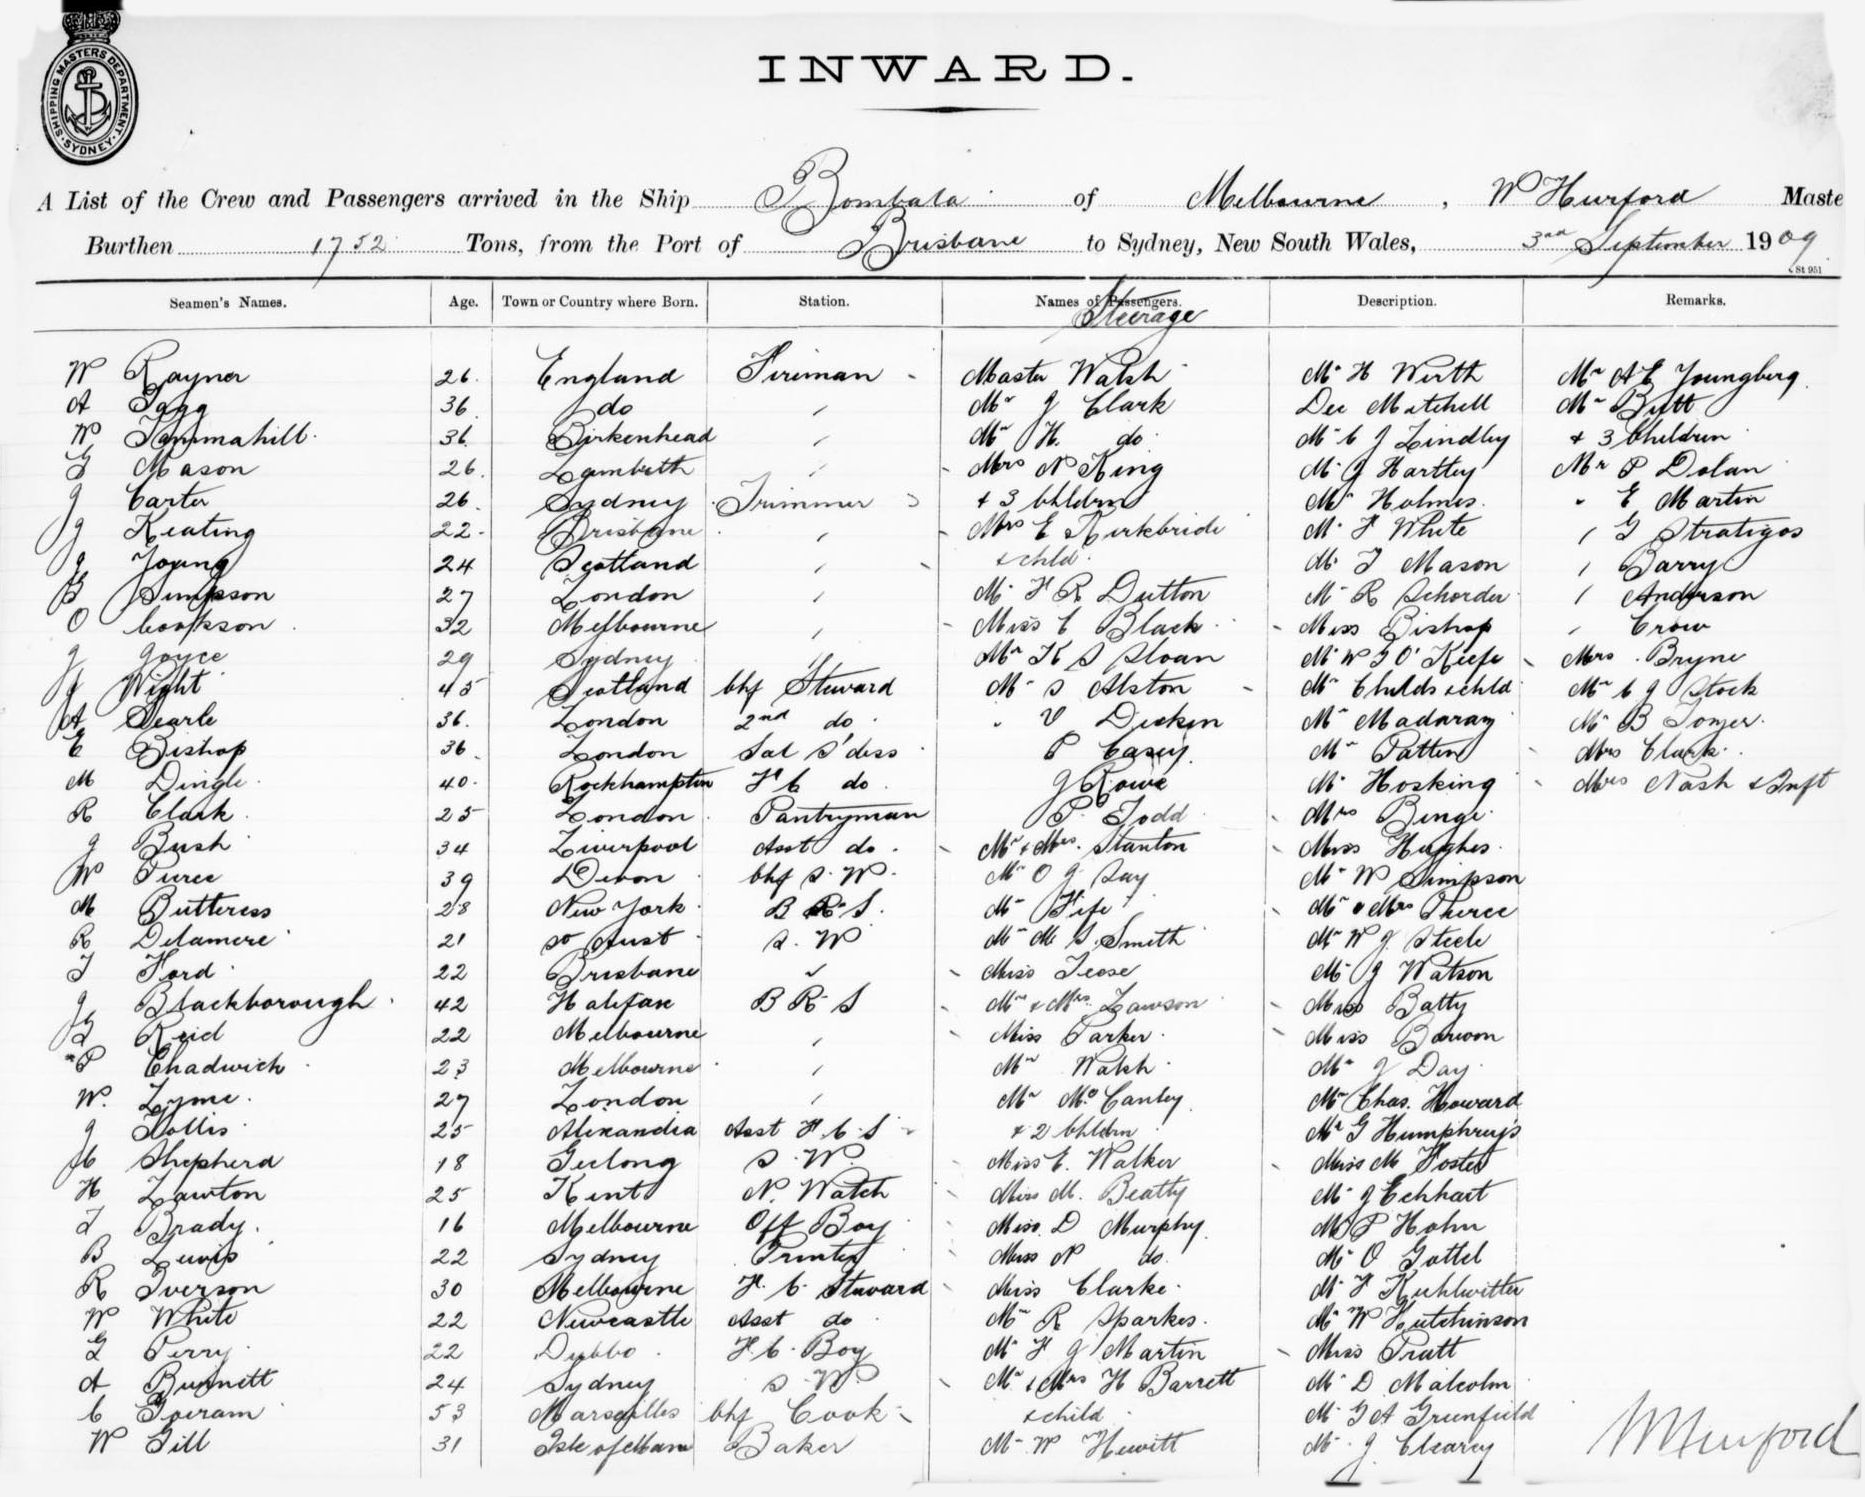 SHIPPING MASTERS DEPARTMENT. SYDNEY.
INWARD.
A List of the Crew and Passengers arrived in the Ship Bombala of Melbourne, W Hurford Maste
Burthen 1752 Tons, from the Port of Brisbane to Sydney, New South Wales, 3rd September 1909
St 951
Seamen's Names. Age. Town or Country where Born. Station. Names of Passengers. Description. Remarks.
Steerage
W Rayner 26 England Fireman Master Walsh Mr H Wirth Mr A E Youngberg
A Tagg 36 do " Mr J Clark Dec Mitchell Mr Butt
W Tammahill 36 Birkenhead " Mr H. do Mr C J Lindley + 3 Children
G Mason 26 Lambeth " Mrs N King Mr J Hartley Mr P Dolan
J Carter 26 Sydney Trimmer + 3 Chldrn Mr Holmes " E Martin
J Keating 22 Brisbane " Mrs E Kirkbride Mr F White " G Stratigos
J Young 24 Scotland " + chld Mr T Mason " Barry
B Simpson 27 London " Mr F R Dutton Mr R Schorder " Anderson
O Cookson 32 Melbourne " Miss C Black Miss Bishop " Crow
J Joyce 29 Sydney Mr K S Sloan Mr W G O'Keefe Mrs Bryne
J Wight 45 Scotland Chf Steward Mr S Alston Mr Childs + chld Mr C J Stock
A Searle 36 London 2nd do " V Dickin Mr Madaray Mr B Tozer
E Bishop 36 London Sal S'dess P Casey Mr Patten Mrs Clark
M Dingle 40 Rockhampton F C do J Rowe Mr Hosking Mrs Nash + Inft
R Clark 25 London Pantryman P Todd Mrs Binge
J Bush 34 Liverpool Asst do Mr + Mrs Stanton Miss Hughes
W Turee 39 Devon Chf S. W Mr O J Say Mr W Simpson
M Butteress 28 New York B R S Mr Fife Mr + Mrs Pierce
R Delamere 21 So Aust S. W Mr M S. Smith Mr W J Steele
T Ford 22 Brisbane " Miss Teese Mr J Watson
J Blackborough 42 Halifax B R S Mr + Mrs Lawson Miss Batty
G Reid 22 Melbourne " Miss Parker Miss Barwon
P Chadwick 23 Melbourne " Mr Walsh Mr J Day
W. Lyme 27 London " Mr McCanley Mr Chas. Howard
J Hollis 25 Alexandia Asst F. C. S + 2 Chldrn Mr G Humphreys
C Shepherd 18 Geelong S. W. Miss E. Walker Miss M Foster
H Lawton 25 Kent N. Watch Miss M. Beatty Mr J Echhart
T Brady 16 Melbourne Off Boy Miss D Murphy Mr P Hohn
B Lewis 22 Sydney Printer Miss N do Mr O Gottel
R Iverson 30 Melbourne F. C. Steward Miss Clarke Mr F Kuhlwitter
W White 22 Newcastle Asst do Mr R Sparkes Mr W Hutchinson
G Perry 22 Dubbo F. C. Boy Mr F J Martin Miss Pratt
A Burnett 24 Sydney S. W. Mr + Mrs H Barrett Mr D Malcolm
C Goiram 53 Marseilles Chf Cook + child Mr G A Greenfield
W Gill 31 Isle of Man Baker Mr W Hewitt Mr J Clearey
W Hurford